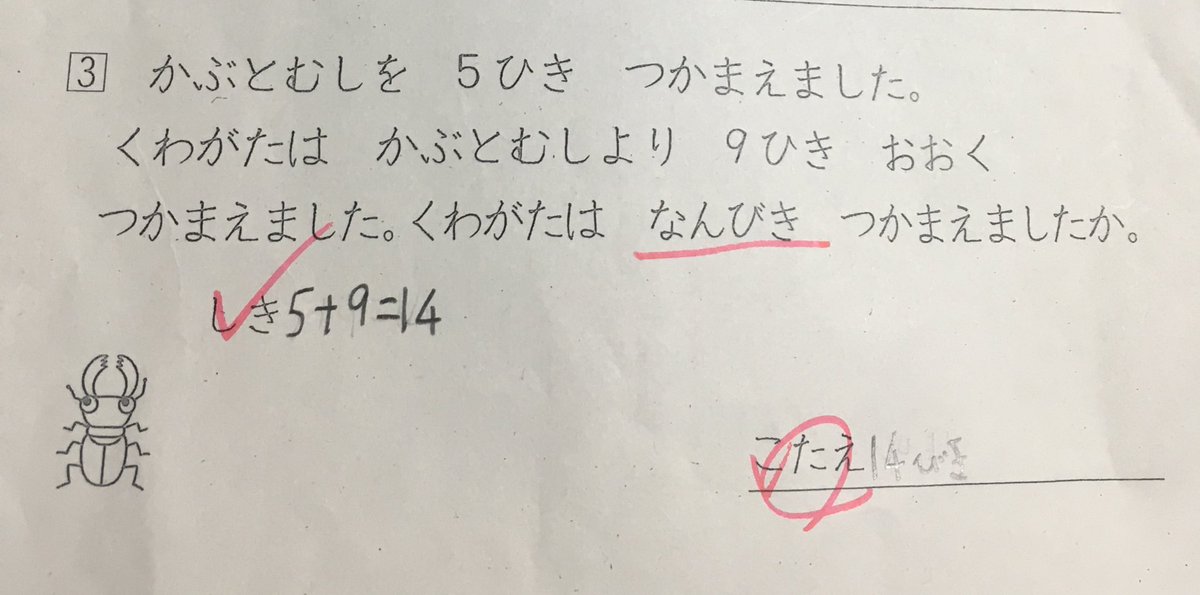 3 かぶとむしを 5ひき つかまえました。
くわがたは かぶとむしより 9ひき おおく
つかまえました。くわがたは なんびき つかまえましたか。
しき5+9=14
こたえ14ひき